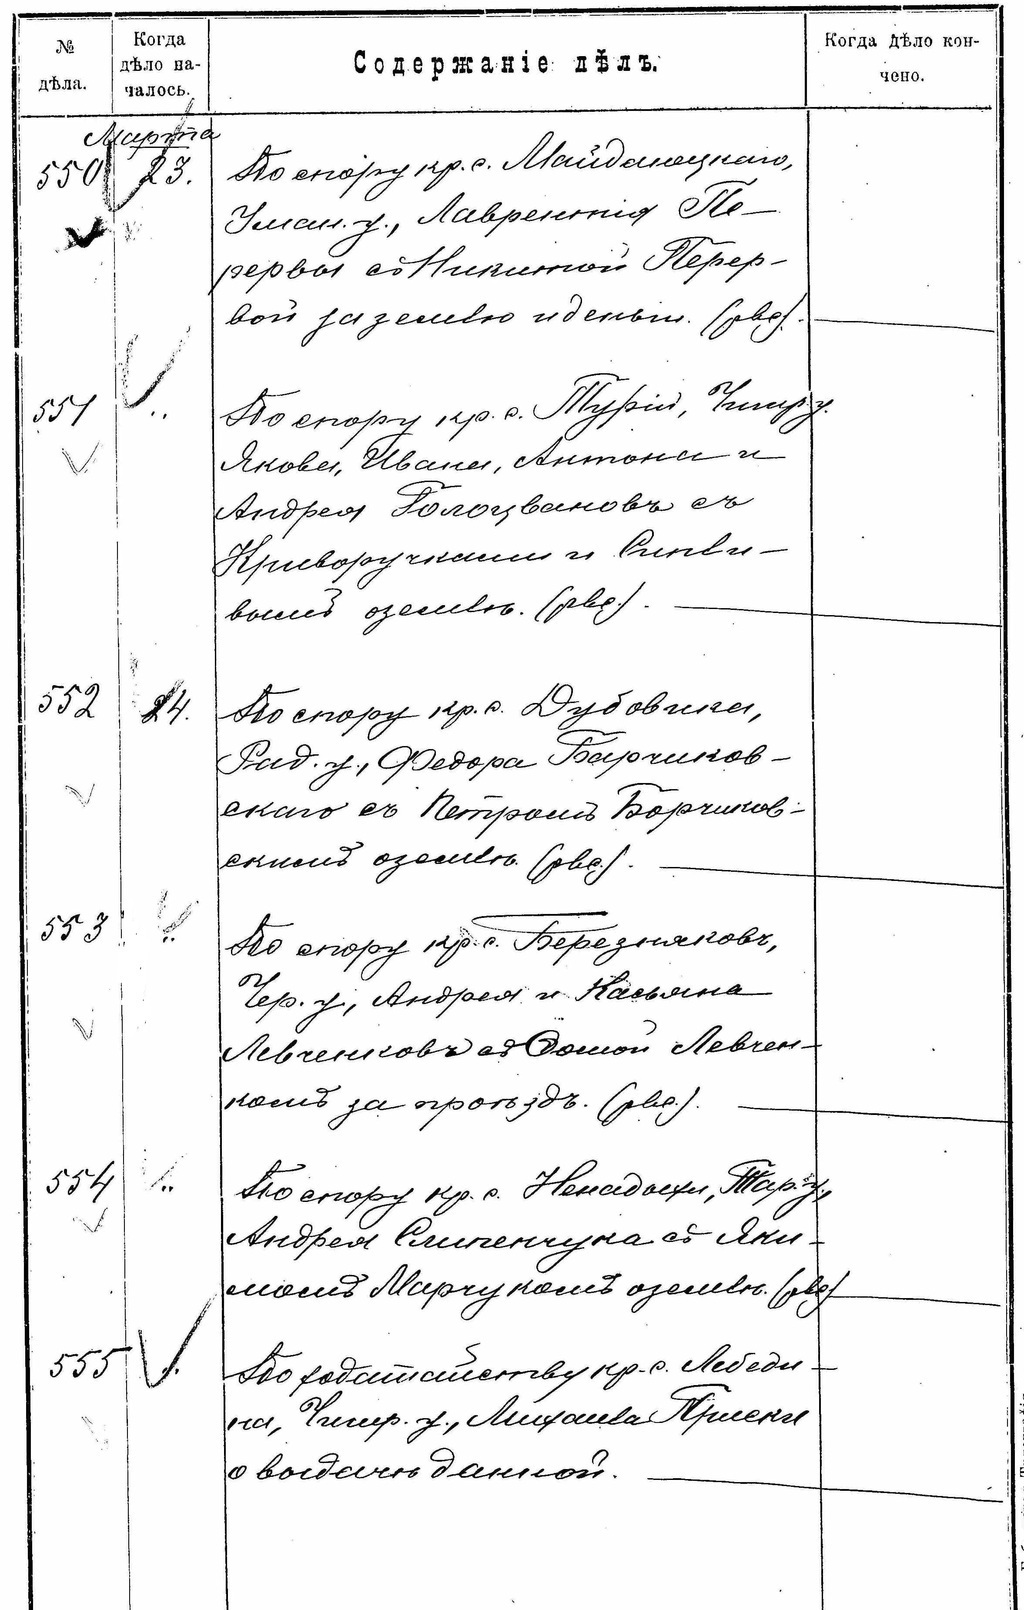 № дѣла.
Когда дѣло на-
чалось.
Содержаніе дѣлъ.
Когда дѣло кон-
чено.
Марта
550 23. По спору кр. с. Майданецкаго,
Уман. у., Лаврентія Пе-
рервы съ Никитой Перер-
вой за землю и деньги.
551 " По спору кр. с. Турій, Чигир. у.
Якова, Ивана, Антона и
Андрея Голоцвановъ съ
Криворучками и Сиви-
вымъ о землѣ.
552 24. По спору кр. с. Дубовика,
Рад. у., Федора Барчиков-
скаго съ Петромъ Борчиков-
скимъ о землѣ.
553 " По спору кр. с. Березняковъ,
Чер. у., Андрея и Касьяна
Левченковъ съ Фомой Левчен-
комъ за проѣздъ.
554 " По спору кр. с. Ненадыхи, Тар. у.,
Андрея Слипенчука съ Яки-
момъ Марчукомъ о землѣ.
555 " По ходатайству кр. с. Лебеди-
на, Чигир. у., Михаила Приски
о выдачѣ данной.